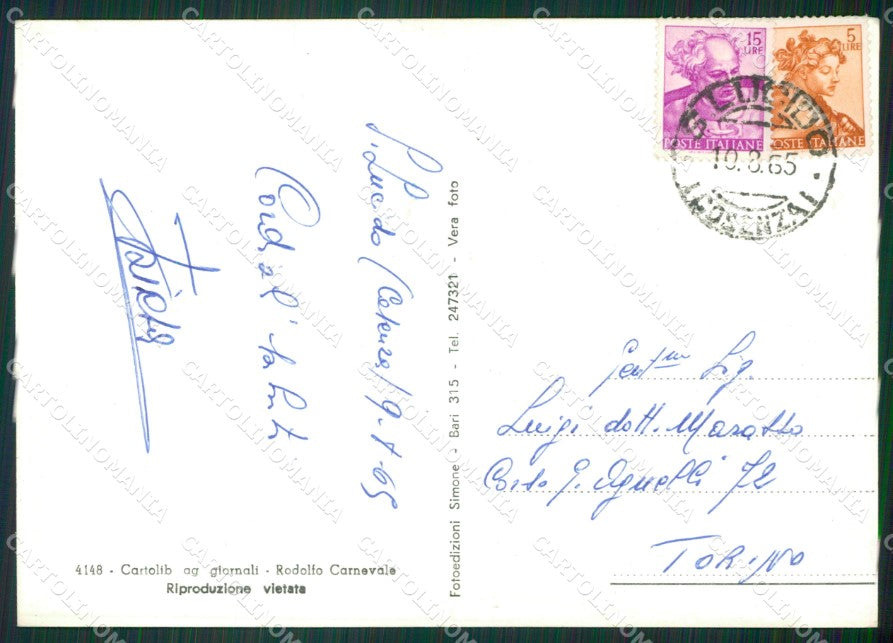 15 LIRE
5 LIRE
POSTE ITALIANE
POSTE ITALIANE
10.8.65
(COSENZA)
S. Lucido (Cosenza) 9-8-65
Cordiali saluti
Gent.mo Sig.
Luigi dott. Masatto
Corso G. Agnelli 72
TORINO
Fotoedizioni Simone - Bari 315 - Tel. 247321 - Vera foto
4148 - Cartolib ag giornali - Rodolfo Carnevale
Riproduzione vietata
CARTOLINOMANIA